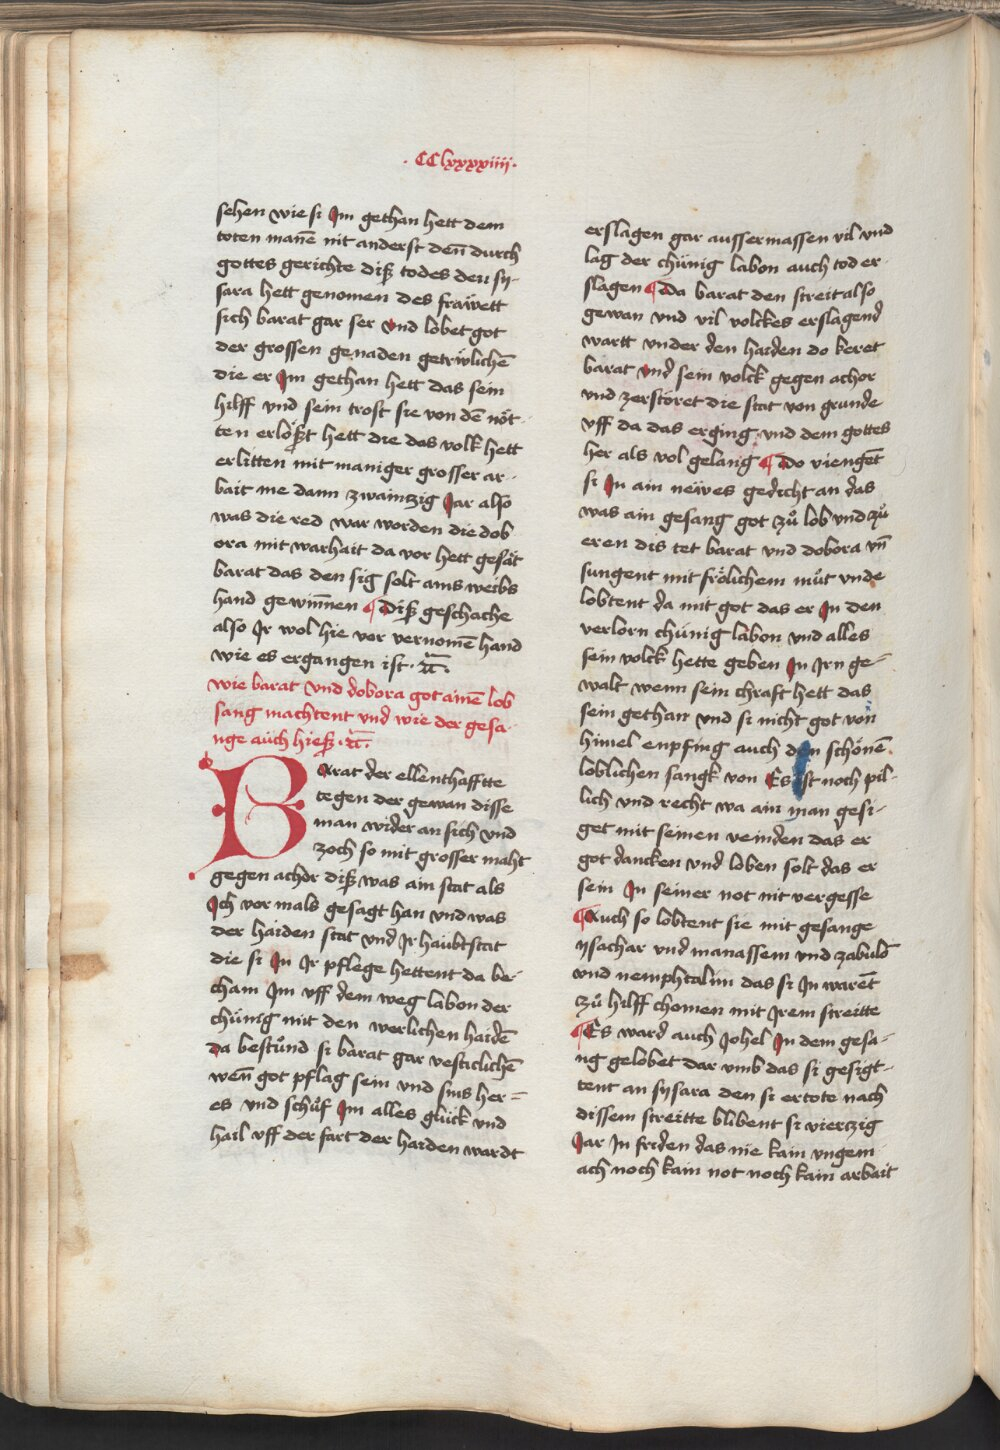 · CClxxxxiiii ·
sehen wie si Im gethan hett dem
toten manē nit anderst den̄ durch
gottes gerichte diß todes den sy-
sara hett genomen des fräwett
sich barat gar ser vnd lobet got
der grossen genaden getrwlichē
die er Im gethan hett das sein
hilff vnd sein trost sie von dē nöt-
ten erlößt hett die das volk hett
erlitten mit maniger grosser ar-
bait me dann zwaintzig Jar also
was die red war worden die dob
ora mit warhait da vor hett gesät
barat das den sig solt ains weibs
hand gewin̄nen ¶ Diß geschache
also Ir wol hie vor vernomē hand
wie es ergangen ist ·
wie barat vnd dobora got ainē lob
sang machtent vnd wie der gesa-
nge aüch hieß ·
Barat der ellenthafftte
tegen der gewan disse
man wider an sich vnd
zoch so mit grosser maht
gegen achor diß was ain stat als
Ich vor mals gesagt han vnd was
der haiden stat vnd Ir haübtstat
die si In Ir pflege hettent da be-
cham Im vff dem weg labon der
chünig mit den werlichen haidē
da bestůnd si barat gar vesticlichē
wen̄ got pflag sein vnd sins her=
es vnd schůf Im alles glück vnd
hail vff der fart der haiden wardt
erslagen gar aussermassen vil vnd
lag der chünig labon auch tod er-
slagen ¶ Da barat den streit also
gewan vnd vil volckes erslagend
wartt vnder den haiden do keret
barat vnd sein volck gegen achor
vnd zerstöret die stat von grunde
vff da das erging vnd dem gottes
her als vol gelang ¶ Do viengēt
si In ain neẅes gedicht an das
was ain gesang got zů lob vnd zů
eren dis tet barat vnd dobora vn̄
sungent mit frölichem můt vnde
lobtent da mit got das er In den
verlorn chünig labon vnd alles
sein volck hette geben In Irn ge-
walt wenn sein chraft hett das
sein gethan vnd si nicht got von
himel enpfing auch den schönen
loblichen sangk von Es ist noch pil-
lich vnd recht wa ain man gesi-
get mit seinen veinden das er
got dancken vnd loben solt das er
sein In seiner not nit vergesse
¶ Auch so lobtent sie mit gesange
ysachar vnd manassem vnd zabulō
vnd nemphtalim das si In warēt
zů hilff chomen mit Irem streitte
¶ Es ward auch Johel In dem gesa-
ng gelobet dar vmb das si gesigt-
tent an sysara den si ertote nach
dissem streitte blibent si viertzig
Jar In friden das nie kain vngem-
ach noch kain not noch kain arbait